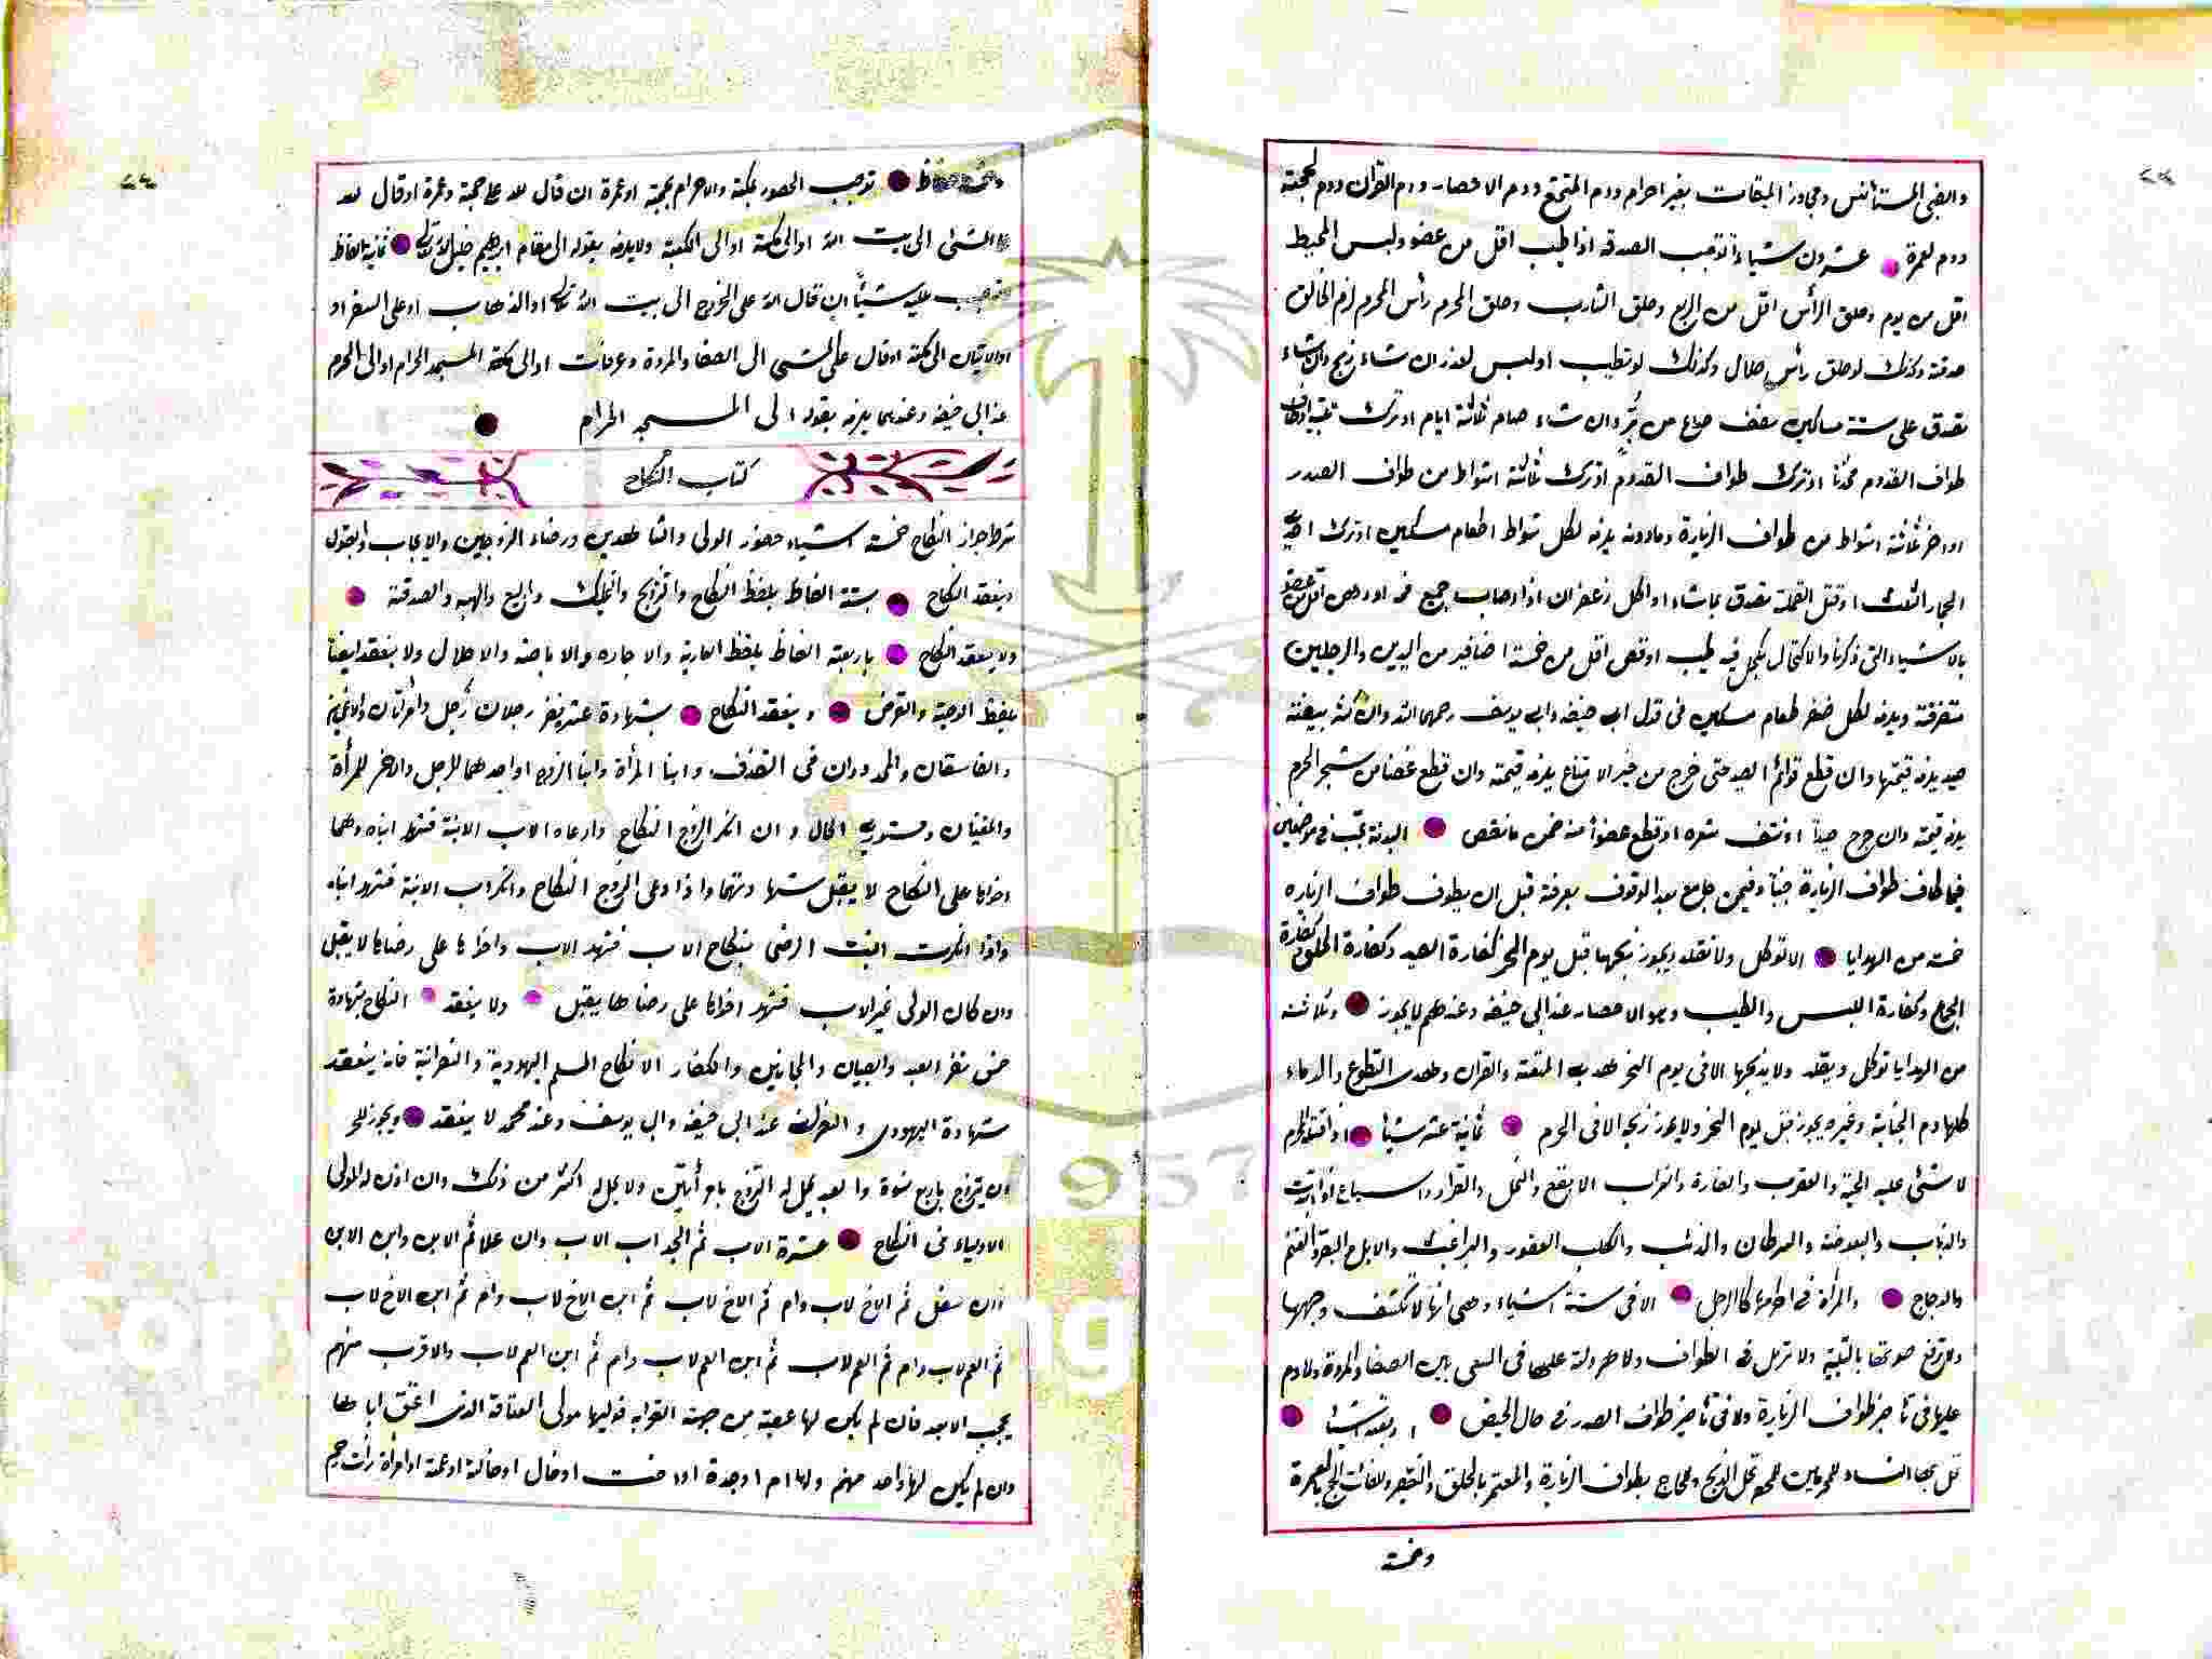 والظبي المستأنس ومجاوز الميقات بغير احرام ودم المتمتع ودم الاحصار ودم القران ودم لحجته
ودم لعمرة عشرون شياء توجب الصدقه اذا طيب اقل من عضو ولبس المخيط
اقل من يوم وحلق الرأس اقل من الربع وحلق الشارب وحلق المحرم رأس المحرم لزم الحالق
صدقة وكذلك لو حلق رأس حلال وكذلك لو تطيب او لبس لعذر ان شاء ذبح وان شاء
تصدق على ستة مساكين بنصف صاع من بر وان شاء صام ثلثة ايام او ترك
طواف القدوم محدثا او ترك طواف القدوم او ترك ثلثة اشواط من طواف الصدر
او اخر ثلثة اشواط من طواف الزيارة وما دونه يلزمه لكل شواط اطعام مسكين او ترك احدى
الجمار الثلث او قتل القملة تصدق بما شاء او اكل زعفران اذا اصاب جميع فمه او
بالاشياء التى ذكرنا والاكتحال بكحل فيه طيب او قص اقل من خمسة اضافير من اليدين والرجلين
متفرقة ويلزمه لكل ضفر طعام مسكين فى قول ابى حنيفه وابى يوسف رحمهما الله وان كسر بيضة
صيد يلزمه قيمتها وان قطع قوائم الصيد حتى خرج من خير الامتناع يلزمه قيمته وان قطع غصنا من شجر الحرم
يلزمه قيمته وان جرح صيدا او نتف شعره او قطع عضوا منه ضمن ما نقص البدنة تجب فى موضعين
فيما طاف طواف الزيارة جنبا وفيمن جامع بعد الوقوف بعرفة قبل ان يطوف طواف الزياره
خمسة من الهدايا الا توكل ولا تقلد ويجوز ذبحها قبل يوم النحر كفارة الصيد وكفارة الحلق وكفارة
الجماع وكفارة اللبس والطيب وهو الاحصار عند ابى حنيفه وعندهم لا يجوز وثلاثة
من الهدايا توكل ويقلد ولا يذبحها الا فى يوم النحر هدى المتعة والقران وهدى التطوع والدماء
كلها دم الجناية وغيره يجوز قبل يوم النحر ولا يجوز ذبحه الا فى الحرم ثمانية عشر شيأ اذا قتله المحرم
لا شئ عليه الحية والعقرب والفارة والغراب الابقع والنمل والقراد والسباع اذا ابتدأت
والذباب والبعوضة والسرطان والذئب والكلب العقور والبراغيث والابل والبقر والغنم
والدجاج والمرأة فى احرامها كالرجل الا فى ستة اشياء وهى انها لا تكشف وجهها
ولا ترفع صوتها بالتلبية ولا ترمل فى الطواف ولا هرولة عليها فى السعى بين الصفا والمروة ولا دم
عليها فى تأخير طواف الزيارة ولا فى تأخير طواف الصدر فى حال الحيض اربعة اشيا
تحل بها النساء للمحرمين للحج وللحاج بطواف الزيارة والمعتمر بالحلق والتقصير ولفائت الحج بالعمرة
وخمسة
توجب الحضور بمكة والاحرام بحجة او عمرة ان قال لله على حجة وعمرة او قال لله
المشى الى بيت الله او الى مكة او الى الكعبة ولا يلزمه بقوله الى مقام ابراهيم خليل الله ثمانية الفاظ
عليه شيأ ان قال لله على الخروج الى بيت الله تعالى او الذهاب او على السفر او
او الاتيان الى مكة او قال على المشى الى الصفا والمروة وعرفات او الى مكة المسجد الحرام او الى الحرم
عند ابى حنيفه وعندهما يلزمه بقوله الى المسجد الحرام
كتاب النكاح
شرط جواز النكاح خمسة اشياء حضور الولى والشاهدين ورضاء الزوجين والايجاب والقبول
وينعقد النكاح بستة الفاظ بلفظ النكاح والتزويج والتمليك والبيع والهبه والصدقة
ولا ينعقد النكاح باربعة الفاظ بلفظ العارية والاجاره والاباحة والاحلال ولا ينعقد ايضا
بلفظ الوصية والقرض وينعقد النكاح بشهادة عشر نفر رجلان رجل وامرأتان والاعميين
والفاسقان والمحدودان فى القذف وابنا المرأة وابنا الزوج او احدهما للرجل والاخر للمرأة
والمغنيان ومستورى الحال وان انكر الزوج النكاح وادعاه الاب الابنة فشهد ابناه وهما
اخواها على النكاح لا يقبل شهادتهما واذا ادعى الزوج النكاح وانكر اب الابنة فشهد ابناه
واذا انكرت البنت الرضى بنكاح الاب فشهد الاب واخوها على رضاها لا يقبل
وان كان الولى غير الاب فشهد اخواها على رضاها يقبل ولا ينعقد النكاح بشهادة
خمس نفر العبد والصبيان والمجانين والكفار الا نكاح المسلم اليهودية والنصرانية فانه ينعقد
شهادة اليهودى والنصرانى عند ابى حنيفه وابى يوسف وعند محمد لا ينعقد ويجوز للحر
ان يتزوج باربع نسوة والعبد يحل له التزوج بامرأتين ولا يحل له اكثر من ذلك وان اذن له المولى
الاولياء فى النكاح عشرة الاب ثم الجد اب الاب وان علا ثم الابن وابن الابن
وان سفل ثم الاخ لاب وام ثم الاخ لاب ثم ابن الاخ لاب وام ثم ابن الاخ لاب
ثم العم لاب وام ثم العم لاب ثم ابن العم لاب وام ثم ابن العم لاب والاقرب منهم
يحجب الابعد فان لم يكن لها عصبة من جهة القرابه فوليها مولى العتاقة الذى اعتق اباها
وان لم يكن لها واحد منهم ولها ام او جدة او اخت او خال او خالة او عمة او امرأة ذات رحم